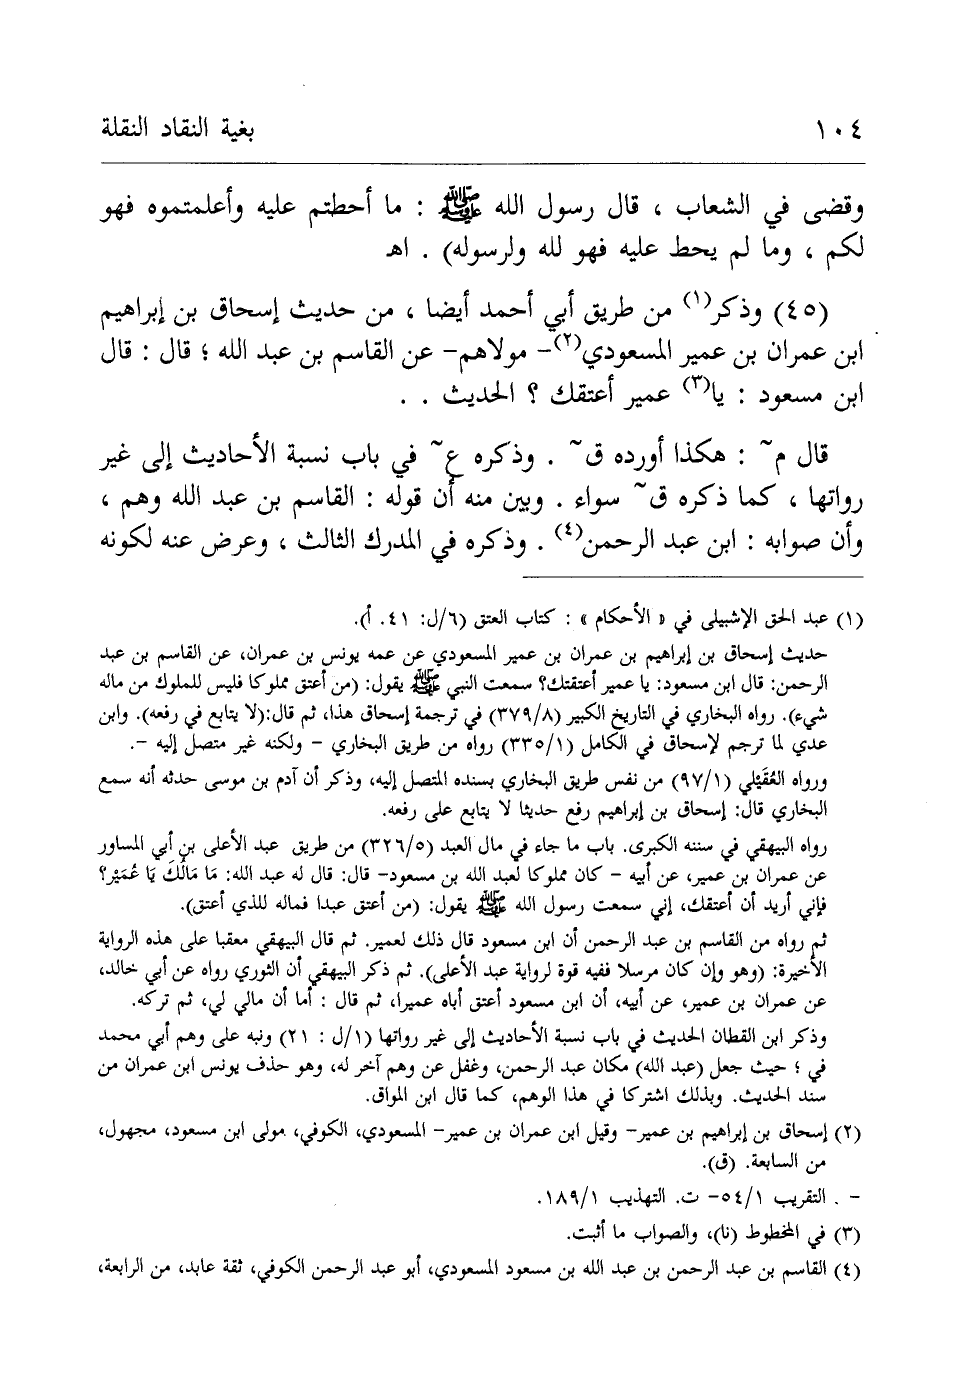 ١٠٤ بغية النقاد النقلة
وقضى في الشعاب ، قال رسول الله ﷺ : ما أحطتم عليه وأعلمتموه فهو
لكم ، وما لم يحط عليه فهو لله ولرسوله) . اهـ
(٤٥) وذكر(١) من طريق أبي أحمد أيضا ، من حديث إسحاق بن إبراهيم
ابن عمران بن عمير المسعودي(٢)- مولاهم- عن القاسم بن عبد الله ؛ قال : قال
ابن مسعود : يا(٣) عمير أعتقك ؟ الحديث . .
قال م~ : هكذا أورده ق~ . وذكره ع~ في باب نسبة الأحاديث إلى غير
رواتها ، كما ذكره ق~ سواء . وبين منه أن قوله : القاسم بن عبد الله وهم ،
وأن صوابه : ابن عبد الرحمن(٤) . وذكره في المدرك الثالث ، وعرض عنه لكونه
(١) عبد الحق الإشبيلى في « الأحكام » : كتاب العتق (٦/ل: ٤١. أ).
حديث إسحاق بن إبراهيم بن عمران بن عمير المسعودي عن عمه يونس بن عمران، عن القاسم بن عبد
الرحمن: قال ابن مسعود: يا عمير أعتقتك؟ سمعت النبي ﷺ يقول: (من أعتق مملوكا فليس للملوك من ماله
شيء). رواه البخاري في التاريخ الكبير (٣٧٩/٨) في ترجمة إسحاق هذا، ثم قال:(لا يتابع في رفعه). وابن
عدي لما ترجم لإسحاق في الكامل (٣٣٥/١) رواه من طريق البخاري - ولكنه غير متصل إليه -.
ورواه العُقَيْلي (٩٧/١) من نفس طريق البخاري بسنده المتصل إليه، وذكر أن آدم بن موسى حدثه أنه سمع
البخاري قال: إسحاق بن إبراهيم رفع حديثا لا يتابع على رفعه.
رواه البيهقي في سننه الكبرى. باب ما جاء في مال العبد (٣٢٦/٥) من طريق عبد الأعلى بن أبي المساور
عن عمران بن عمير، عن أبيه - كان مملوكا لعبد الله بن مسعود- قال: قال له عبد الله: مَا مَالُكَ يَا عُمَيْر؟
فإني أريد أن أعتقك، إني سمعت رسول الله ﷺ يقول: (من أعتق عبدا فماله للذي أعتق).
ثم رواه من القاسم بن عبد الرحمن أن ابن مسعود قال ذلك لعمير. ثم قال البيهقي معقبا على هذه الرواية
الأخيرة: (وهو وإن كان مرسلا ففيه قوة لرواية عبد الأعلى). ثم ذكر البيهقي أن الثوري رواه عن أبي خالد،
عن عمران بن عمير، عن أبيه، أن ابن مسعود أعتق أباه عميرا، ثم قال : أما أن مالي لي، ثم تركه.
وذكر ابن القطان الحديث في باب نسبة الأحاديث إلى غير رواتها (١/ل : ٢١) ونبه على وهم أبي محمد
في ؛ حيث جعل (عبد الله) مكان عبد الرحمن، وغفل عن وهم آخر له، وهو حذف يونس ابن عمران من
سند الحديث. وبذلك اشتركا في هذا الوهم، كما قال ابن المواق.
(٢) إسحاق بن إبراهيم بن عمير- وقيل ابن عمران بن عمير- المسعودي، الكوفي، مولى ابن مسعود، مجهول،
من السابعة. (ق).
- . التقريب ٥٤/١- ت. التهذيب ١٨٩/١.
(٣) في المخطوط (نا)، والصواب ما أثبت.
(٤) القاسم بن عبد الرحمن بن عبد الله بن مسعود المسعودي، أبو عبد الرحمن الكوفي، ثقة عابد، من الرابعة،